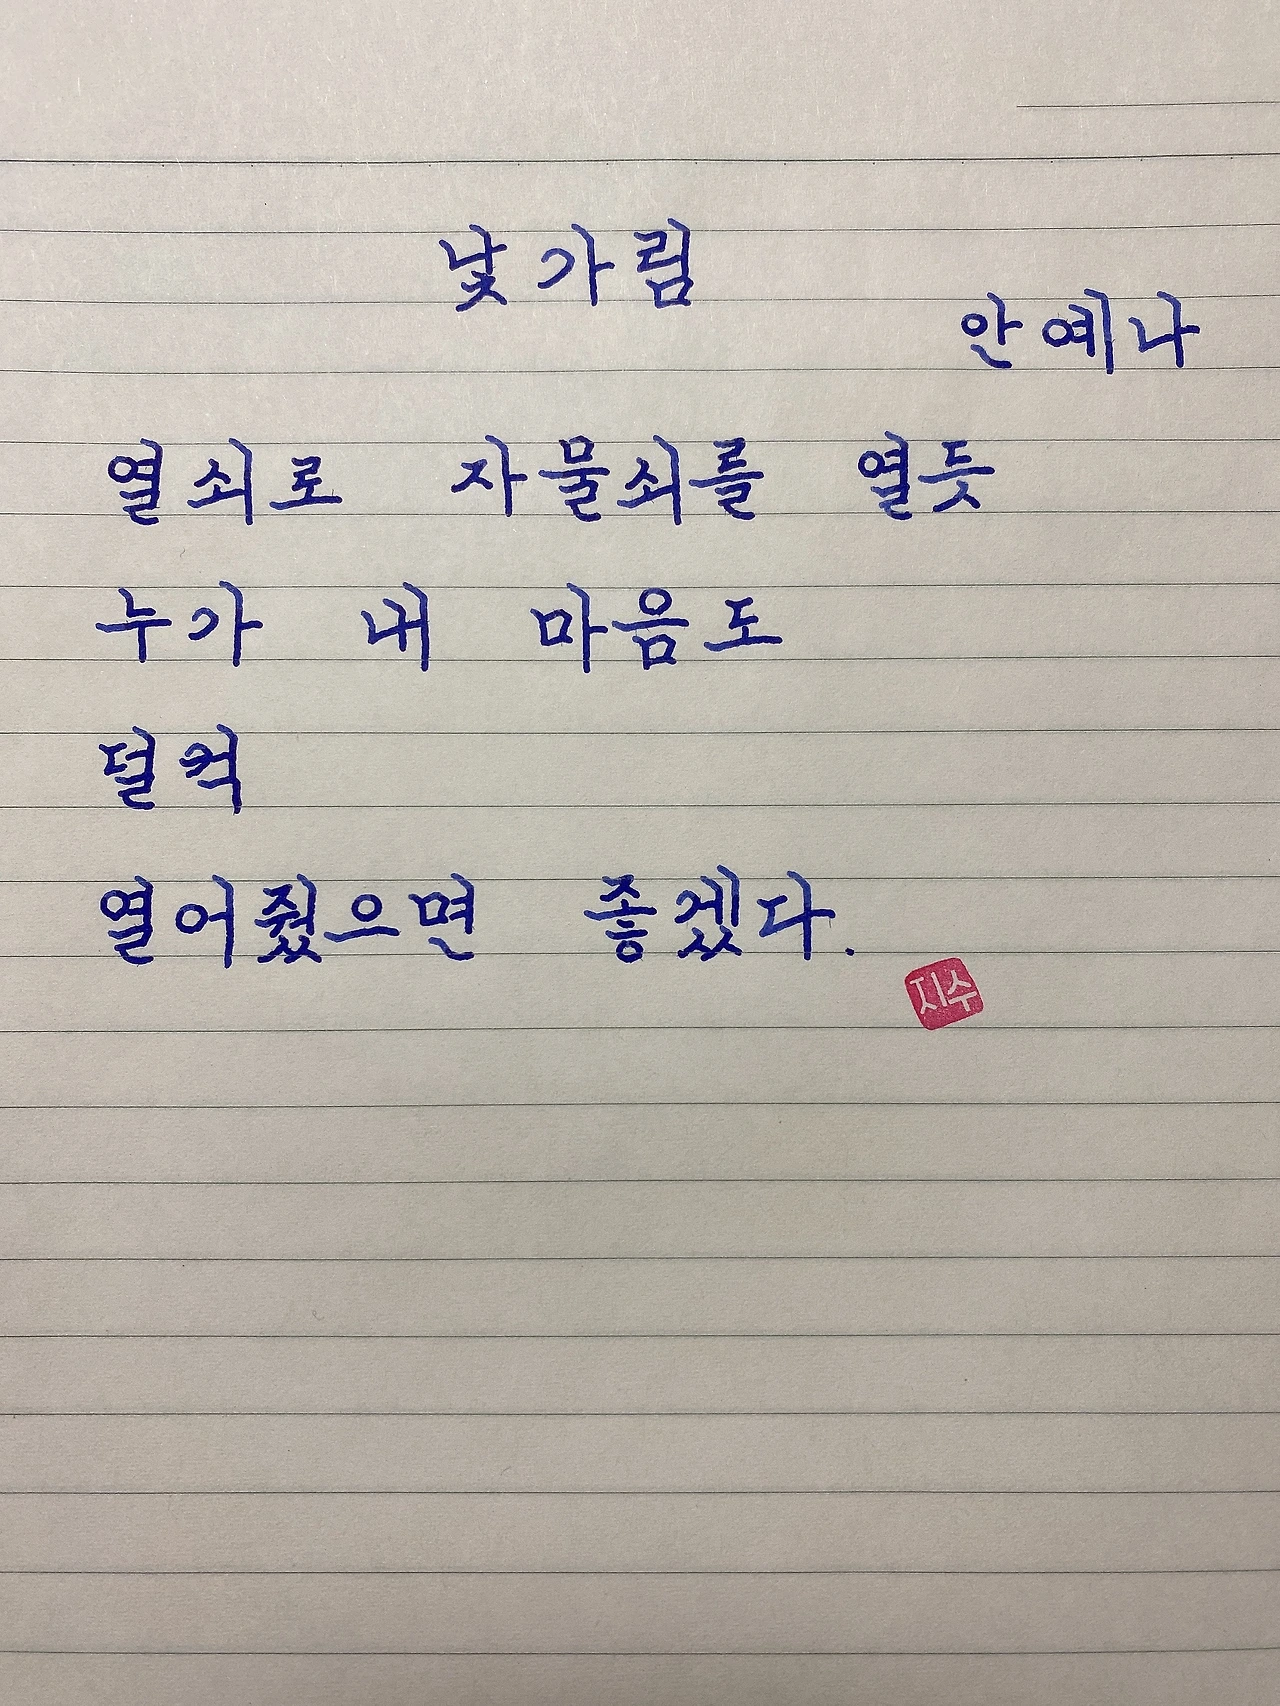 낯가림
안예나
열쇠로 자물쇠를 열듯
누가 내 마음도
덜컥
열어줬으면 좋겠다.
지수